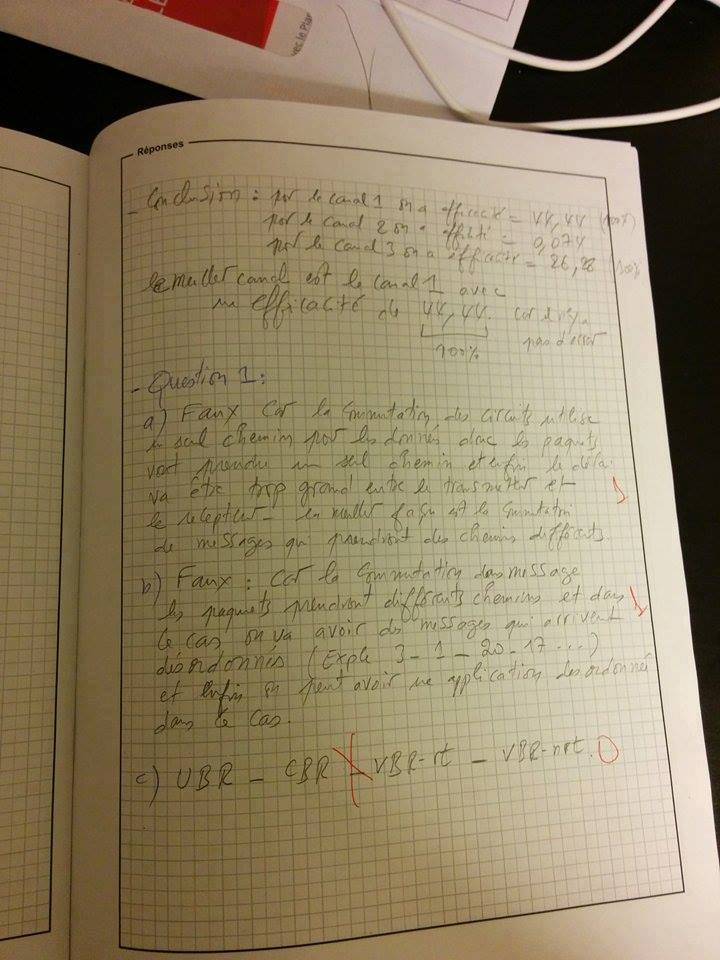 avec le Plan
Réponses
- Conclusion : por le canal 1 on a efficacité = 44,44 (100%)
por le canal 2 on a efficité = 0,074
por le canal 3 on a efficacité = 26,28 (100%
le meiller canal est le canal 1 avec
un efficacité de 44,44. car il n'y a
pas d'error
100%
- Question 1 :
a) Faux Car la Commutation des circuits utilise
un seul chemin por les donnés donc les paquets
vont prendre un seul chemin et enfin le délai
va être trop grand entre le transmetter et
le recepteur - la meiller façon est la Commutation
de messages qui prendront des chemins différents.
1
b) Faux : Car la Commutation dans message
les paquets prendront différents chemins et dans
1
le cas on va avoir des messages qui arrivent
désordonnés (Exple 3 - 1 - 20 - 17 ...)
et enfin on peut avoir une application desordonnée
dans le cas.
c) UBR - CBR - VBR-rt - VBR-nrt. 0